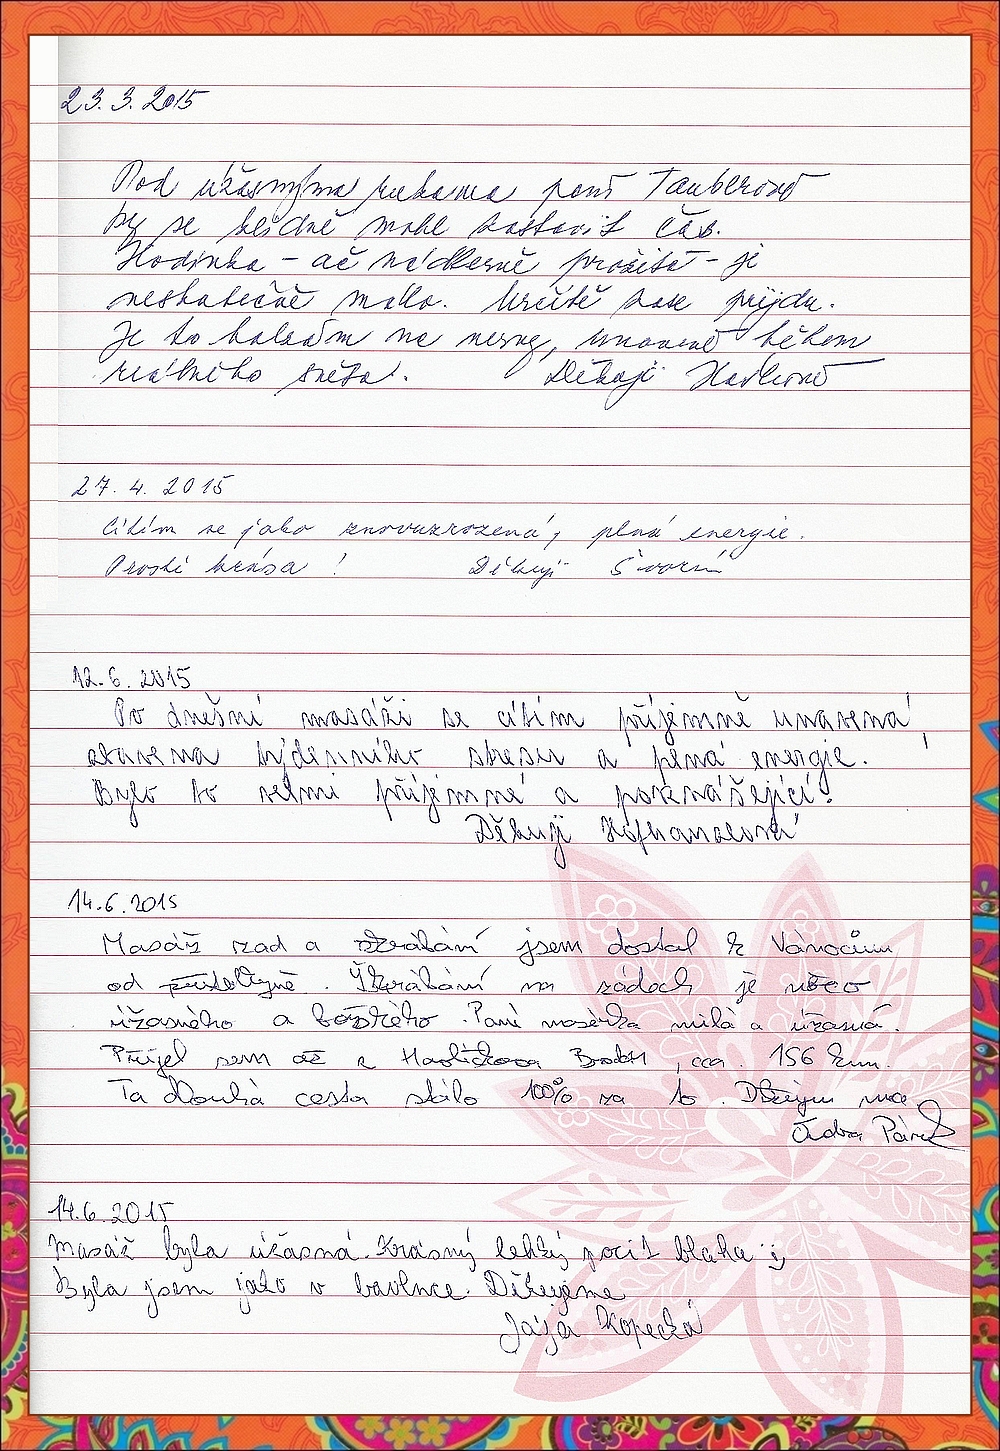 23. 3. 2015
Pod úžasnýma rukama paní Tauberové
by se klidně mohl zastavit čas.
Hodinka – ač nádherně prožitá – je
neskutečně málo. Určitě zase přijdu.
Je to balzám na nervy, unavené během
reálného světa. Děkuji
27. 4. 2015
Cítím se jako znovuzrozená, plná energie.
Prostě krása! Děkuji
12. 6. 2015
Po dnešní masáži se cítím příjemně unavená,
zbavena týdenního stresu a plná energie.
Bylo to velmi příjemné a povznášející.
Děkuji
14. 6. 2015
Masáž zad a škrábání jsem dostal k Vánocům
od přítelkyně. Škrábání na zádech je něco
úžasného a božského. Paní masérka milá a úžasná.
Přijel sem až z Havlíčkova Brodu, cca. 156 km.
Ta dlouhá cesta stálo 100% za to. Děkujem moc
14. 6. 2015
Masáž byla úžasná. Krásný lehký pocit blaha :)
Byla jsem jako v bavlnce. Děkujeme
Jája Kopecká